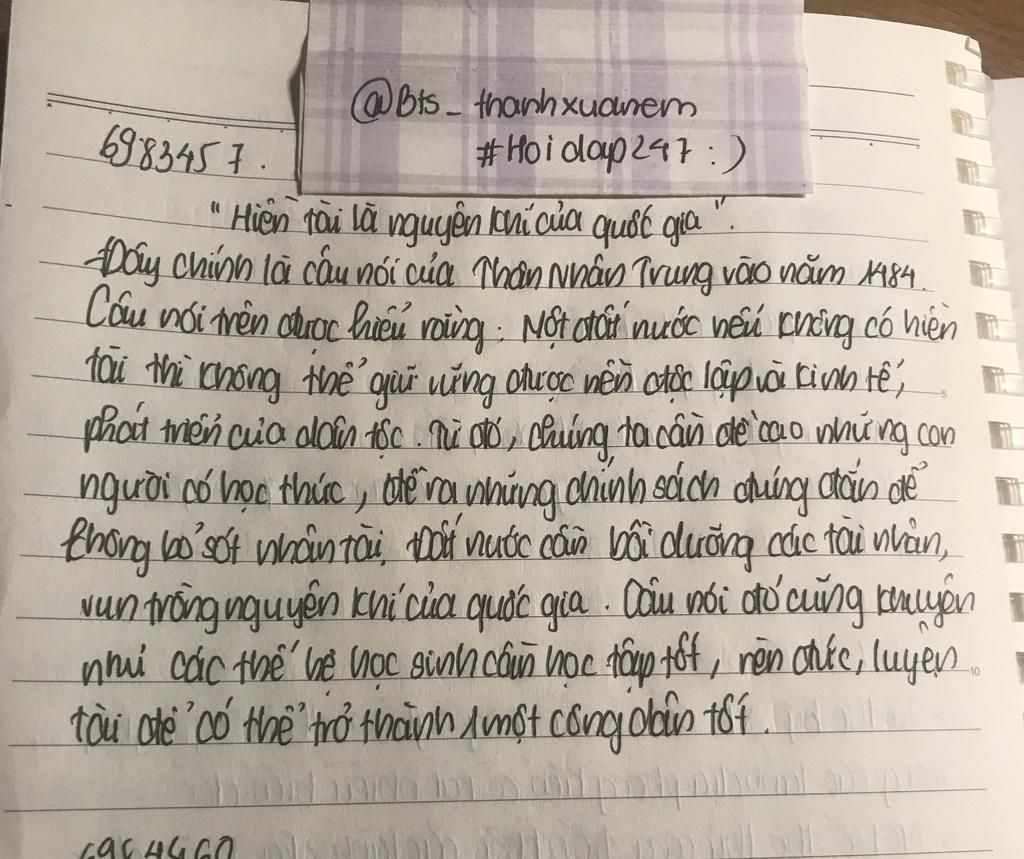 @Bts_thanhxuanem
#Hoidap247 :)
6983457.
"Hiền tài là nguyên khí của quốc gia".
Đây chính là câu nói của Thân Nhân Trung vào năm 1984.
Câu nói trên được hiểu rằng: Một đất nước nếu không có hiền
tài thì không thể giữ vững được nền độc lập và kinh tế,
phát triển của dân tộc. Từ đó, chúng ta cần đề cao những con
người có học thức, đề ra những chính sách đúng đắn để
không bỏ sót nhân tài. Đất nước cần bồi dưỡng các tài nhân,
vun trồng nguyên khí của quốc gia. Câu nói đó cũng khuyên
nhủ các thế hệ học sinh cần học tập tốt, rèn đức, luyện
tài để có thể trở thành 1 một công dân tốt.